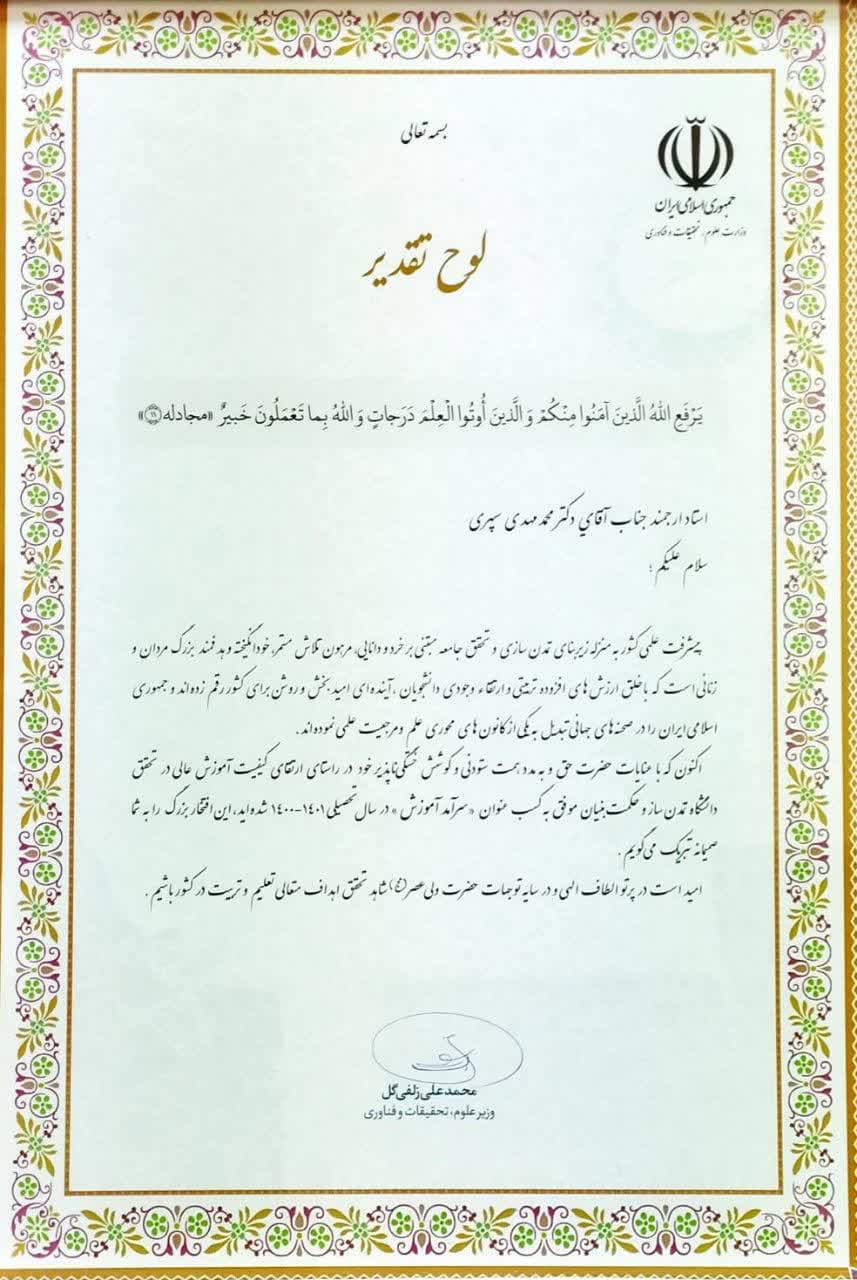 بسمه تعالی
جمهوری اسلامی ایران
وزارت علوم، تحقیقات و فناوری
لوح تقدیر
يَرْفَعِ اللهُ الَّذينَ آمَنُوا مِنْكُمْ وَالَّذينَ أُوتُوا الْعِلْمَ دَرَجاتٍ وَاللهُ بِما تَعْمَلُونَ خَبيرٌ «مجادله ۱۱»
استاد ارجمند جناب آقاي دکتر محمد مهدی سپهری
سلام علیکم ؛
پیشرفت علمی کشور به منزله زیربنای تمدن سازی و تحقق جامعه مبتنی بر خرد و دانایی، مرهون تلاش مستمر، خودانگیخته و هدفمند بزرگ مردان و
زنانی است که با خلق ارزش های افزوده تربیتی و ارتقاء وجودی دانشجویان ، آینده ای امید بخش و روشن برای کشور رقم زده اند و جمهوری
اسلامی ایران را در صحنه های جهانی تبدیل به یکی از کانون های محوری علم و مرجعیت علمی نموده اند .
اکنون که با عنایات حضرت حق و به مدد همت ستودنی و کوشش خستگی ناپذیر خود در راستای ارتقای کیفیت آموزش عالی در تحقق
دانشگاه تمدن ساز و حکمت بنیان موفق به کسب عنوان «سرآمد آموزش » در سال تحصیلی ۱۴۰۱-۱۴۰۰ شده اید، این افتخار بزرگ را به شما
صمیمانه تبریک می گویم .
امید است در پرتو الطاف الهی و در سایه توجهات حضرت ولی عصر(عج) شاهد تحقق اهداف متعالی تعلیم و تربیت در کشور باشیم .
محمدعلی زلفی‌گل
وزیر علوم، تحقیقات و فناوری